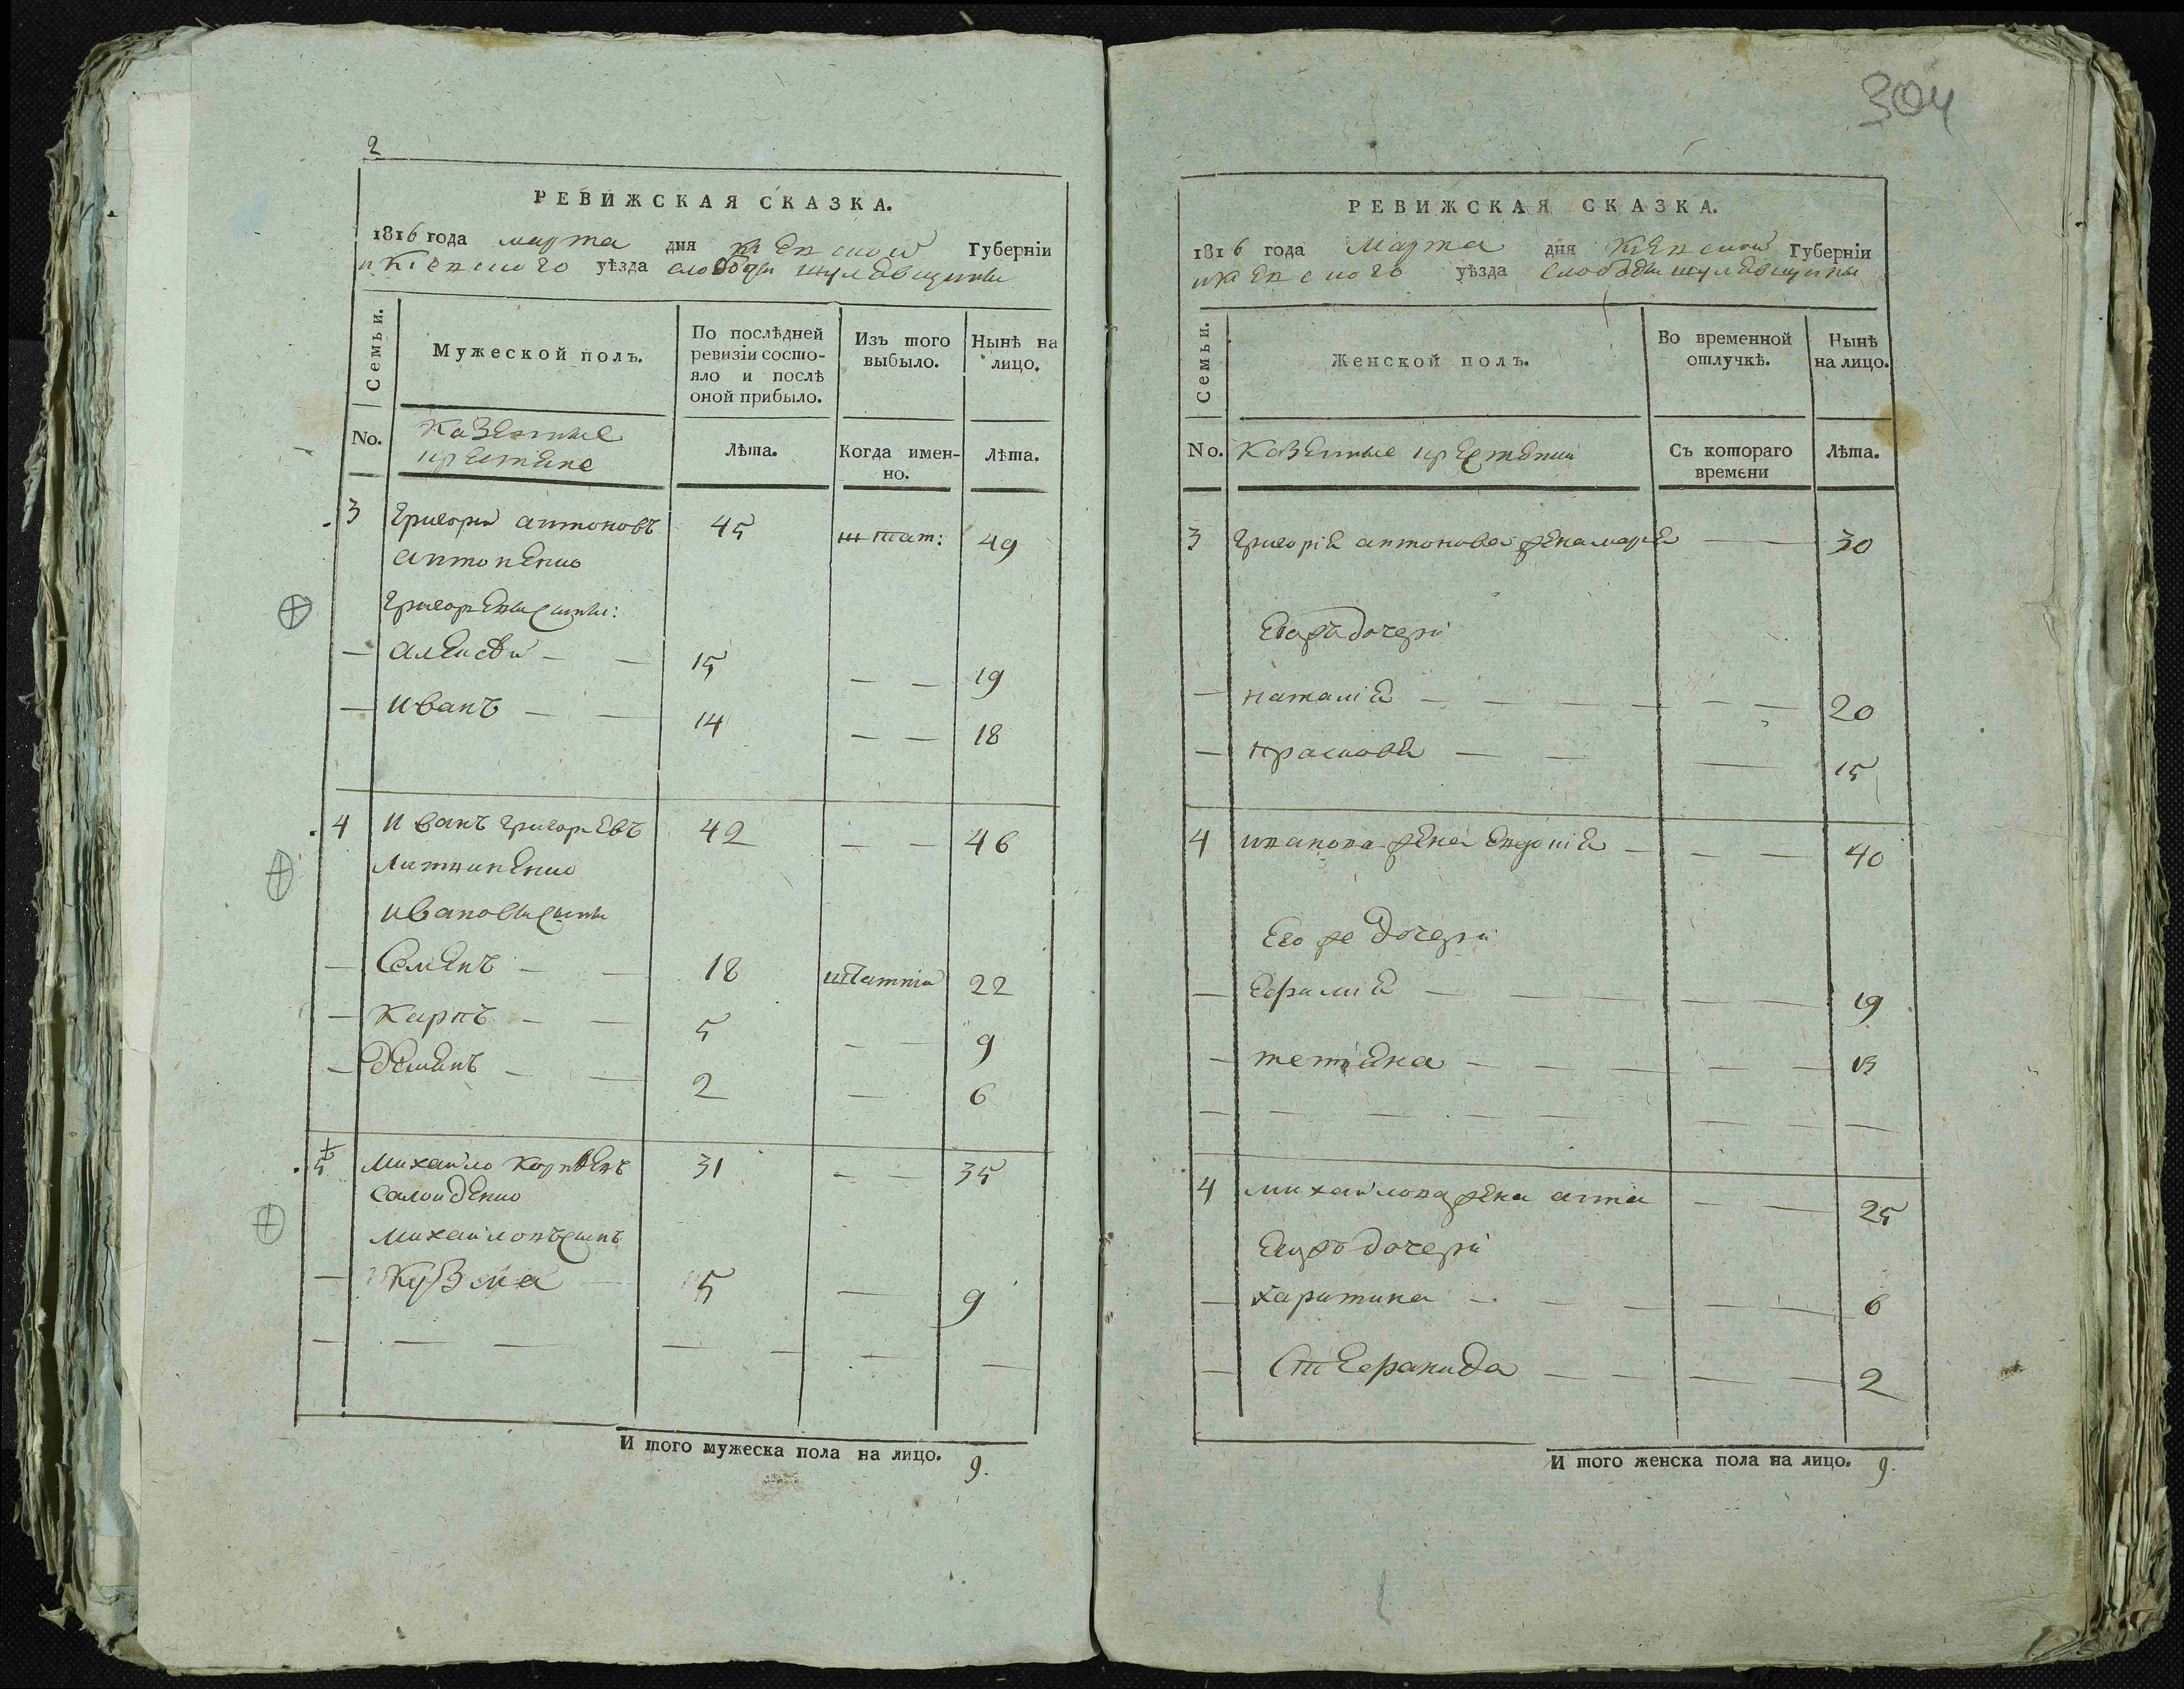 2
РЕВИЖСКАЯ СКАЗКА.
1816 года марта дня Киевской Губерніи
и Киевского уѣзда слободы шулявщины
Семьи.
Мужеской полъ.
По послѣдней ревизіи состояло и послѣ оной прибыло.
Изъ того выбыло.
Нынѣ на лицо.
No.
Казенные крестяне
Лѣта.
Когда именно.
Лѣта.
3 Григорий антоновъ 45 49
антоненко
Григориевы сыны:
— алексѣй — — 15 — — 19
— иванъ — — 14 — — 18
4 иванъ григориевъ 42 — — 46
Литвиненко
ивановы сыны
— Семенъ — — 18 22
— Карпъ — — 5 — — 9
— Демянъ — — 2 — 6
5 Михайло 31 — — 35
михайловъ сынъ
— Кузма — 5 — 9
И того мужеска пола на лицо. 9.
304
РЕВИЖСКАЯ СКАЗКА.
1816 года Марта дня Киевской Губерніи
и Киевского уѣзда слободы шулявщины
Семьи.
Женской полъ.
Во временной отлучкѣ.
Нынѣ на лицо.
No.
Казенные крестянки
Съ котораго времени
Лѣта.
3 Григория антонова жена мария — 30
Егожъ дочери
— наталия — — — — — — 20
— прасковя — — — 15
4 иванова жена евдокия — — — 40
Его же дочери
— Ефимия — — — — — 19
— тетяна — — — — — 13
4 михайлова жена анна — — 25
Егожъ дочери
— харитина — — — — — 6
— Стефанида — — — — 2
И того женска пола на лицо. 9.